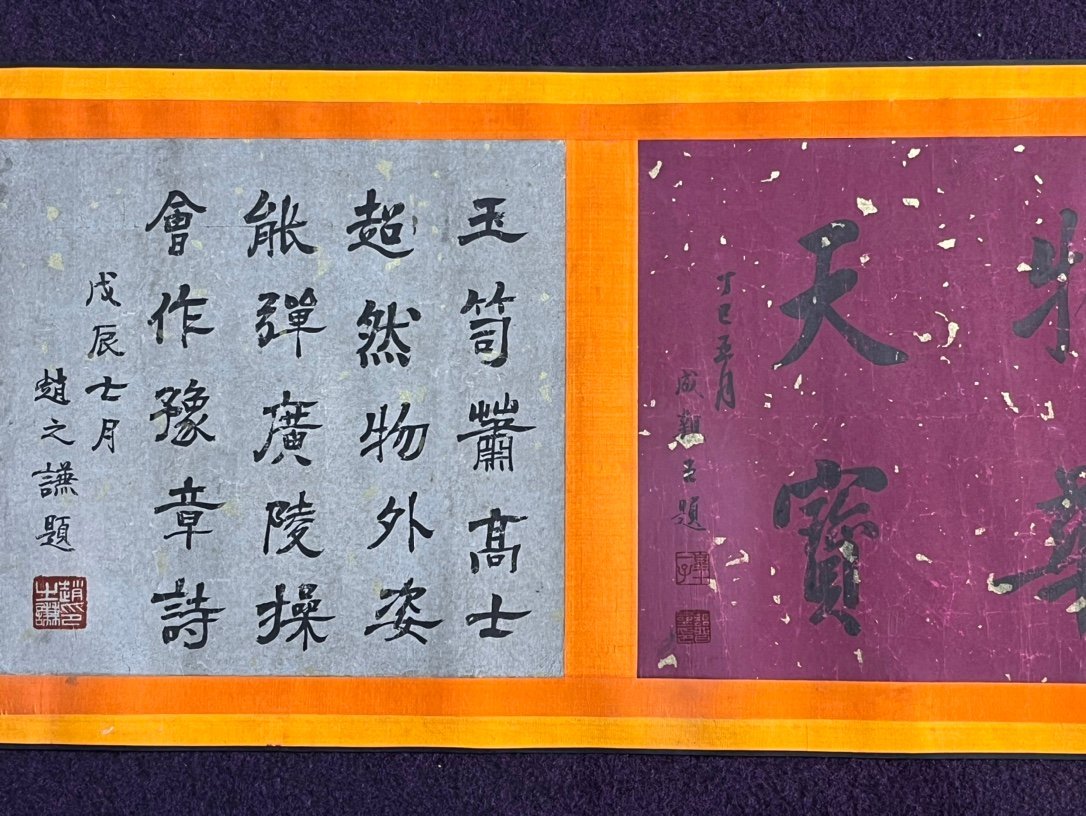 物華
天寶
丁巳五月
成親王題
玉笥蕭髙士
超然物外姿
能彈廣陵操
會作豫章詩
戊辰七月
趙之謙題
趙之謙印